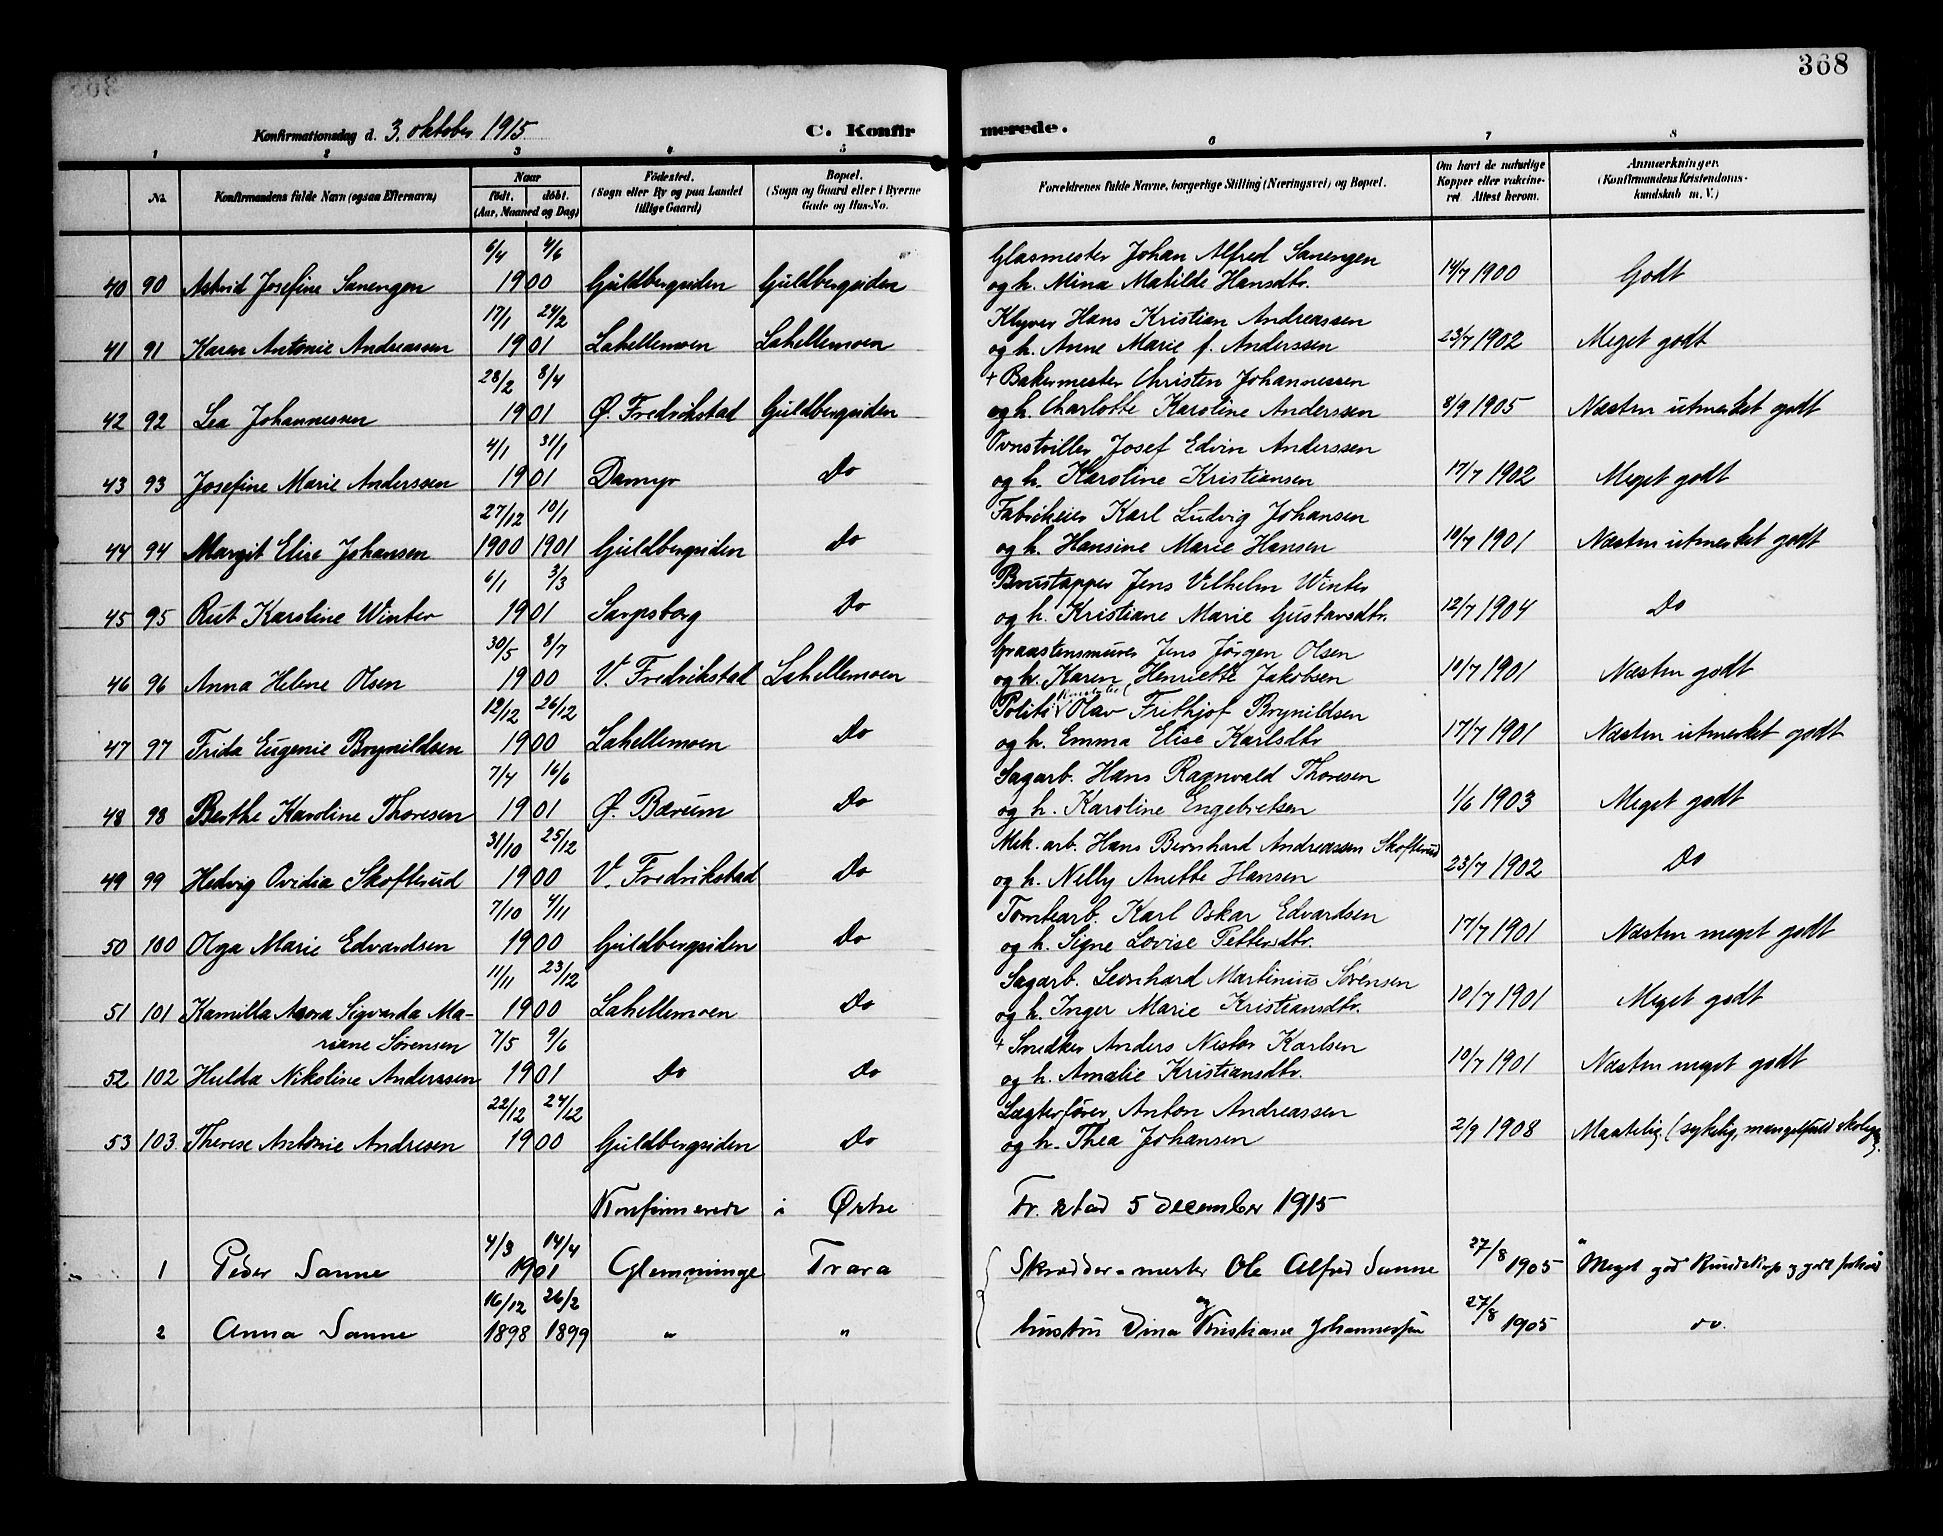 368
Konfirmationsdag d. 3. oktober 1915 C. Konfirmerede.
1 2 3 4 5 6 7 8
No. Konfirmandens fulde Navn (ogsaa Efternavn) Naar født. døbt. (Aar, Maaned og Dag) Födested. (Sogn eller By og paa Landet tillige Gaard) Bopæl. (Sogn og Gaard eller i Byerne Gade og Hus-No. Forældrenes fulde Navne, borgerlige Stilling (Næringsvei) og Bopæl. Om havt de naturlige Kopper eller vaccineret Attest herom. Anmærkninger. (Konfirmandens Kristendomskundskab m. V.)
6/4 4/6 Glasmester Johan Alfred Sanengen
40 90 Astrid Josefine Sanengen 1900 Guldbergsiden Guldbergsiden og h. Mina Matilde Hansdtr. 14/7 1900 Godt
17/1 24/2 Klyver Hans Kristian Andreassen
41 91 Karen Antonie Andreassen 1901 Lahellemoen Lahellemoen og h. Anne Marie f. Anderssen 23/7 1902 Meget godt
28/2 8/4 + Bakermester Christen Johannessen
42 92 Lea Johannessen 1901 Ø. Fredrikstad Guldbergsiden og h. Charlotte Karoline Anderssen 8/9 1905 Næsten utmerket godt
4/1 31/1 Josef Edvin Anderssen
43 93 Josefine Marie Anderssen 1901 Damyr Do og h. Karoline Kristiansen 17/7 1902 Meget godt
27/12 10/1 Fabrikeier Karl Ludvig Johansen
44 94 Margit Elise Johansen 1900 1901 Guldbergsiden Do og h. Hansine Marie Hansen 10/7 1901 Næsten utmerket godt
6/1 3/3 Brustapper Jens Vilhelm Winter
45 95 Rut Karoline Winter 1901 Sarpsborg Do og h. Kristiane Marie Gustavsdtr. 12/7 1904 Do
30/5 8/7 Graastensmurer Jens Jørgen Olsen
46 96 Anna Helene Olsen 1900 V. Fredrikstad Lahellemoen og h. Karen Henriette Jakobsen 10/7 1901 Næsten godt
12/12 26/12 Politikonstabel Olav Frithjof Brynildsen
47 97 Frida Eugenie Brynildsen 1900 Lahellemoen Do og h. Emma Elise Karlsdtr 17/7 1901 Næsten utmerket godt
7/4 16/6 Sagarb. Hans Ragnvald Thoresen
48 98 Berthe Karoline Thoresen 1901 Ø. Bærum Do og h. Karoline Engebretsen 1/6 1903 Meget godt
31/10 25/12 Mek. arb. Hans Bernhard Andreassen Skofterud
49 99 Hedvig Ovidia Skofterud 1900 V. Fredrikstad Do og h. Nelly Anette Hansen 23/7 1902 Do
7/10 4/11 Tomtearb. Karl Oskar Edvardsen
50 100 Olga Marie Edvardsen 1900 Guldbergsiden Do og h. Signe Lovise Pettersdtr. 17/7 1901 Næsten meget godt
11/11 23/12 Sagarb. Leonhard Martinius Sørensen
51 101 Kamilla Asora Sigvarda Ma- 1900 Lahellemoen Do og h. Inger Marie Kristiansdtr. 10/7 1901 Meget godt
riane Sørensen 7/5 9/6 + Snedker Anders Nestor Karlsen
52 102 Hulda Nikoline Anderssen 1901 Do Do og h. Amalie Kristiansdtr. 10/7 1901 Næsten meget godt
22/12 24/12 Lægterfører Anton Andreassen
53 103. Therese Antonie Andresen 1900 Guldbergsiden Do og h. Thea Johansen 2/9 1908 Maatelig. (sykelig, mangelfuld skolegang.
Konfirmerede i Østre Fr. stad 5 december 1915
4/3 14/4
1 Peder Sanne 1901 Glemminge Trara Skrædder-mester Ole Alfred Sanne 27/8 1905 "Meget god Kundskap og godt forhold
16/12 26/2 og
2 Anna Sanne 1898 1899 " " hustru Dina Kristiane Johannessen 27/8 1905 do.